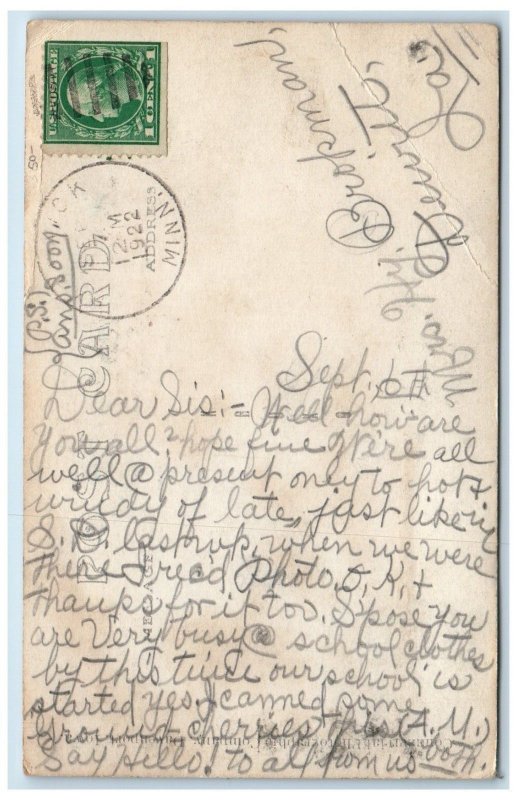 U.S. POSTAGE
1 CENT 1
POST CARD
ADDRESS
MESSAGE
2 M
1922
MINN.
Mrs. Hy. Brockman,
Dewitt,
Ia.
(P.S.)
ans. soon
Sept. 6th
Dear Sis: Well how are
you all? hope fine We're all
well @ present only to hot &
windy of late, just like in
S.D. last
when we were
there I rec'd Photo O.K. +
thanks for it too. S'pose you
are Very busy @ school clothes
by this time our school is
started yes. I canned some
cherries this A.M.,
Say hello! to all from us both.